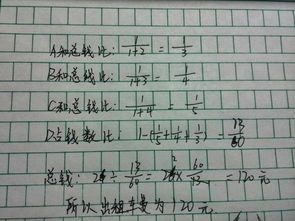 A和总钱比: 1/1+2 = 1/3
B和总钱比: 1/1+3 = 1/4
C和总钱比: 1/1+4 = 1/5
D占钱数比: 1-(1/5+1/4+1/3) = 13/60
总钱: 26÷13/60 = 26×60/13 = 120元
所以出租车费为120元.